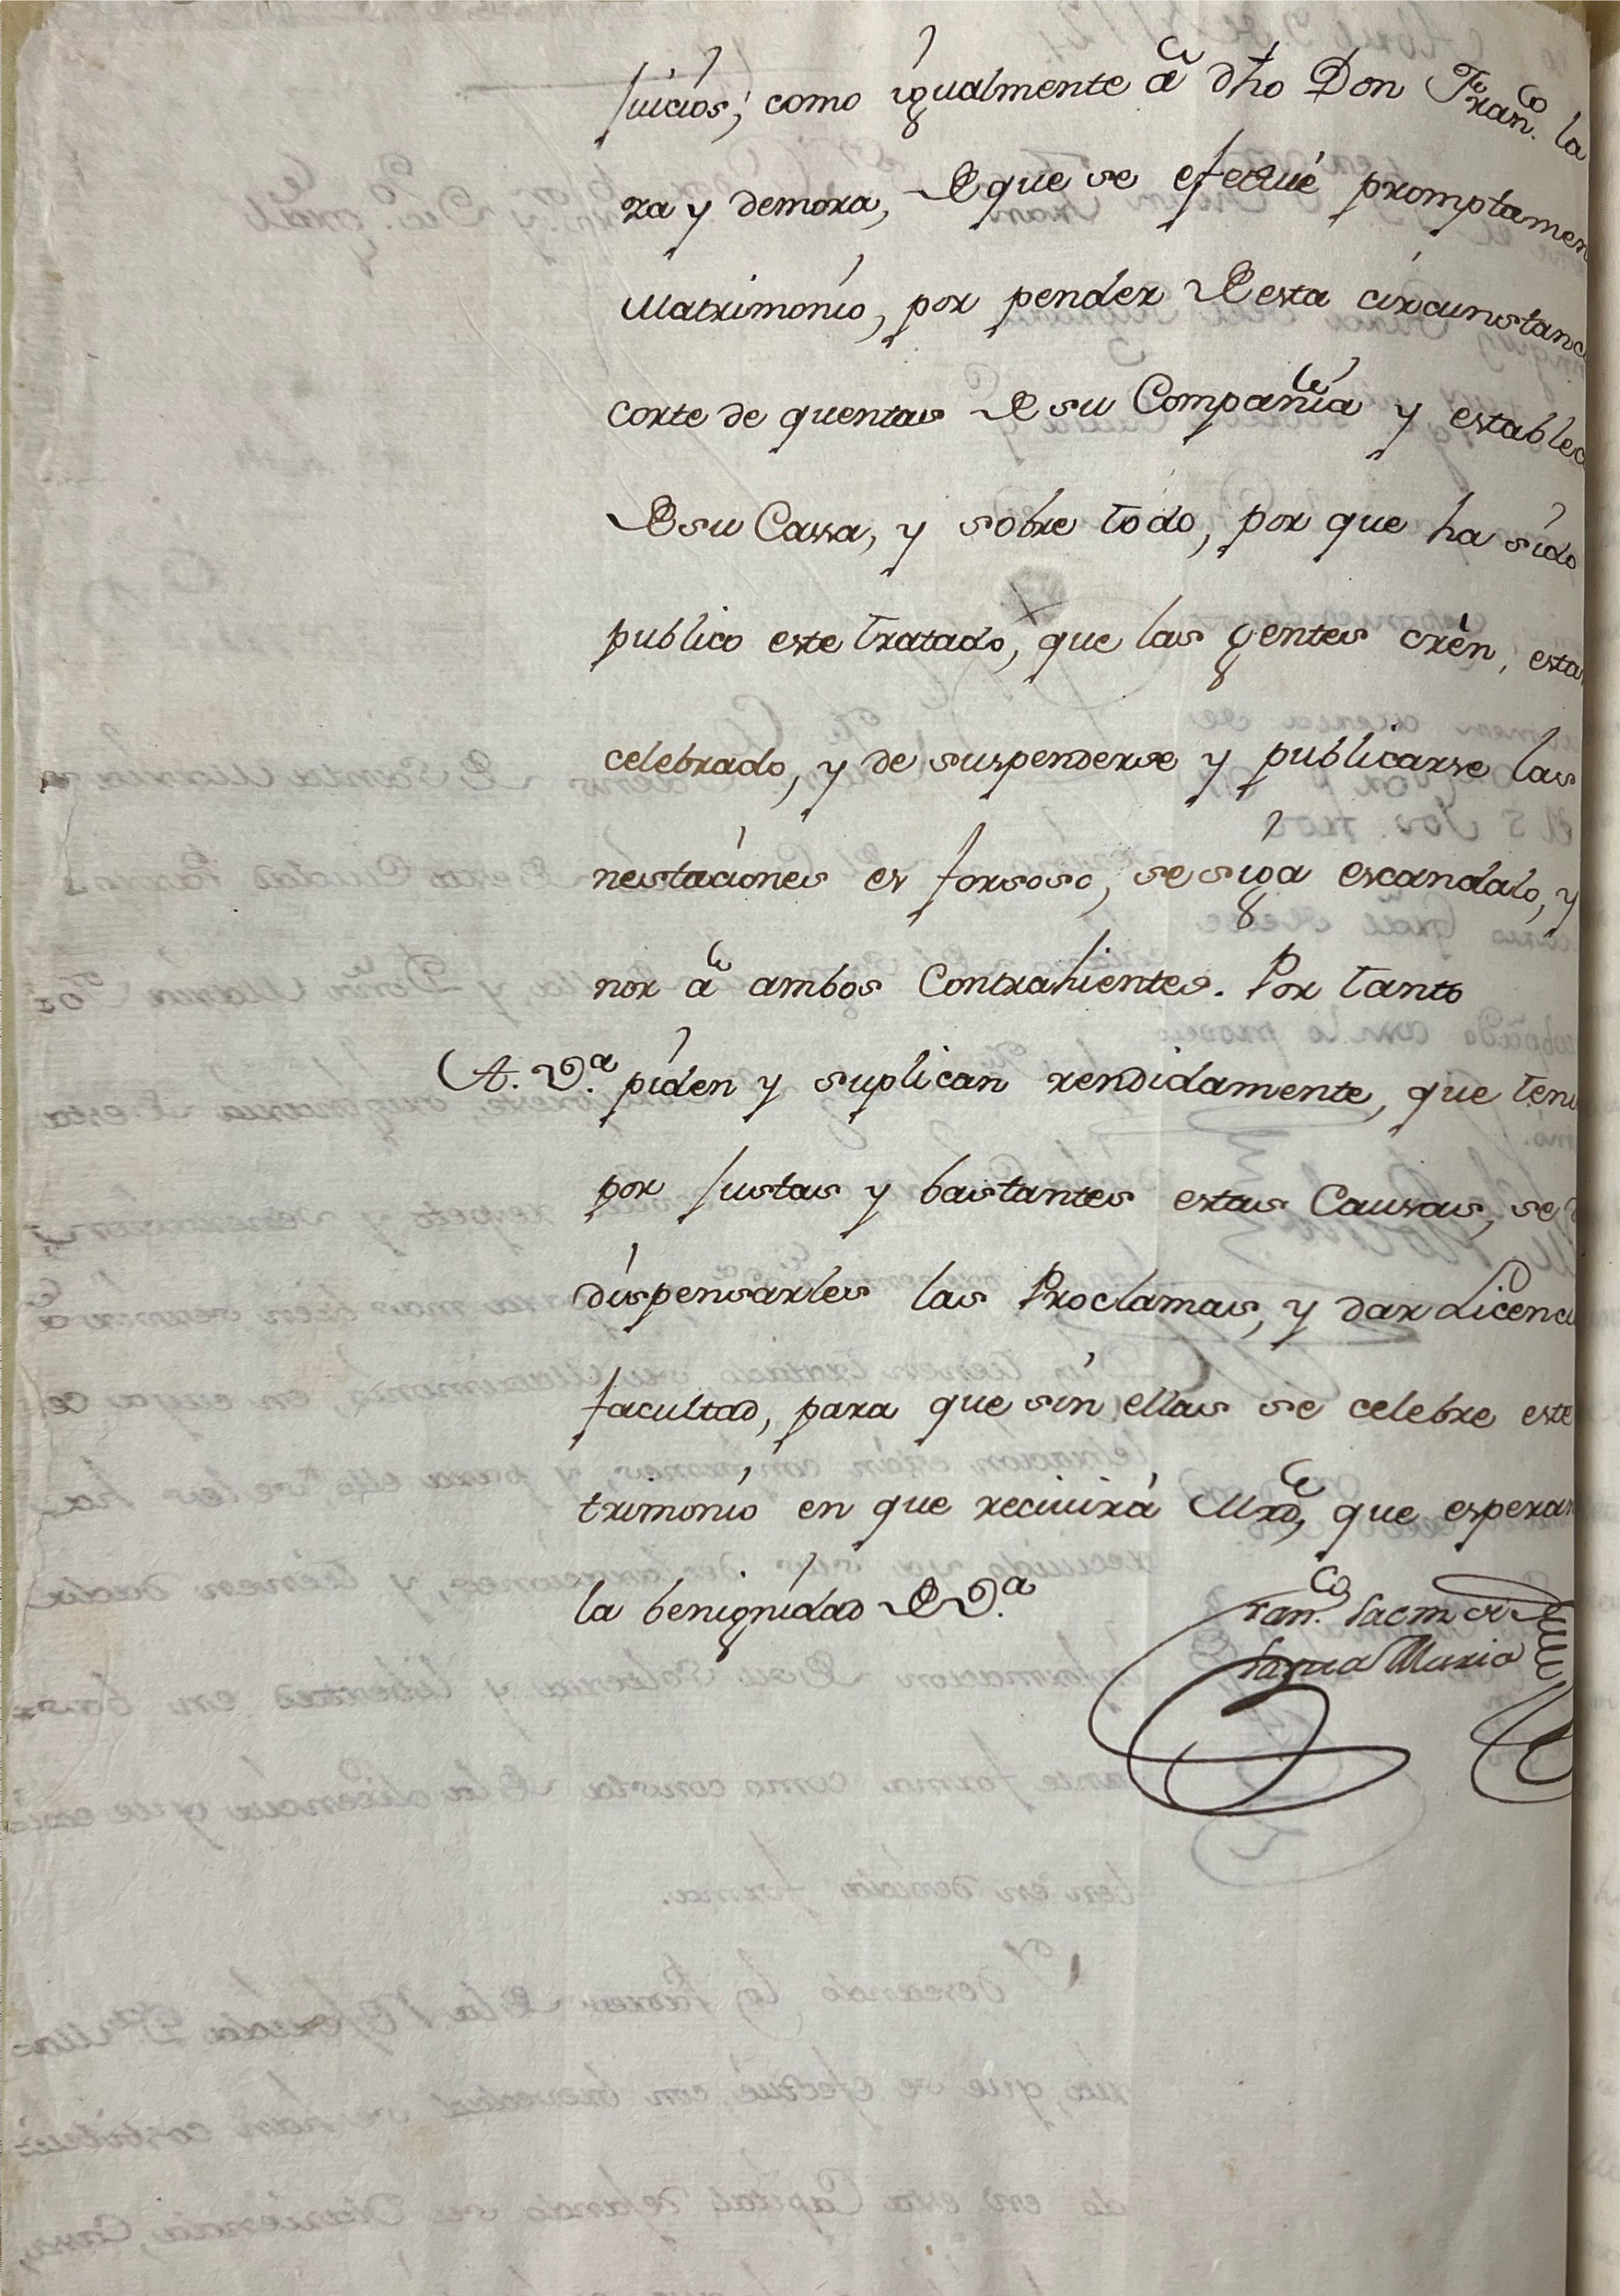 juicios; como igualmente â dho Don Fran.co la
ra y demora, de que se efectué promptamen
Matrimonio, por pender de esta circunstanc
corte de quentas de su Compañia y establec
de su Cassa, y sobre todo, por que ha sido
publico este tratado, que las gentes crên, esta
celebrado, y de suspenderse y publicarse las
nestaciones es forsoso, se siga escandalo, y
nor â ambos Contrahientes. Por tanto
A. V.a piden y suplican rendidamente, que ten
por justas y bastantes estas Causas, se
dispensarles las Proclamas, y dar Licenci
facultad, para que sin ellas se celebre este
trimonio en que reciuirá Mrd, que esperan
la benignidad de V.a
Fran.co
Maria